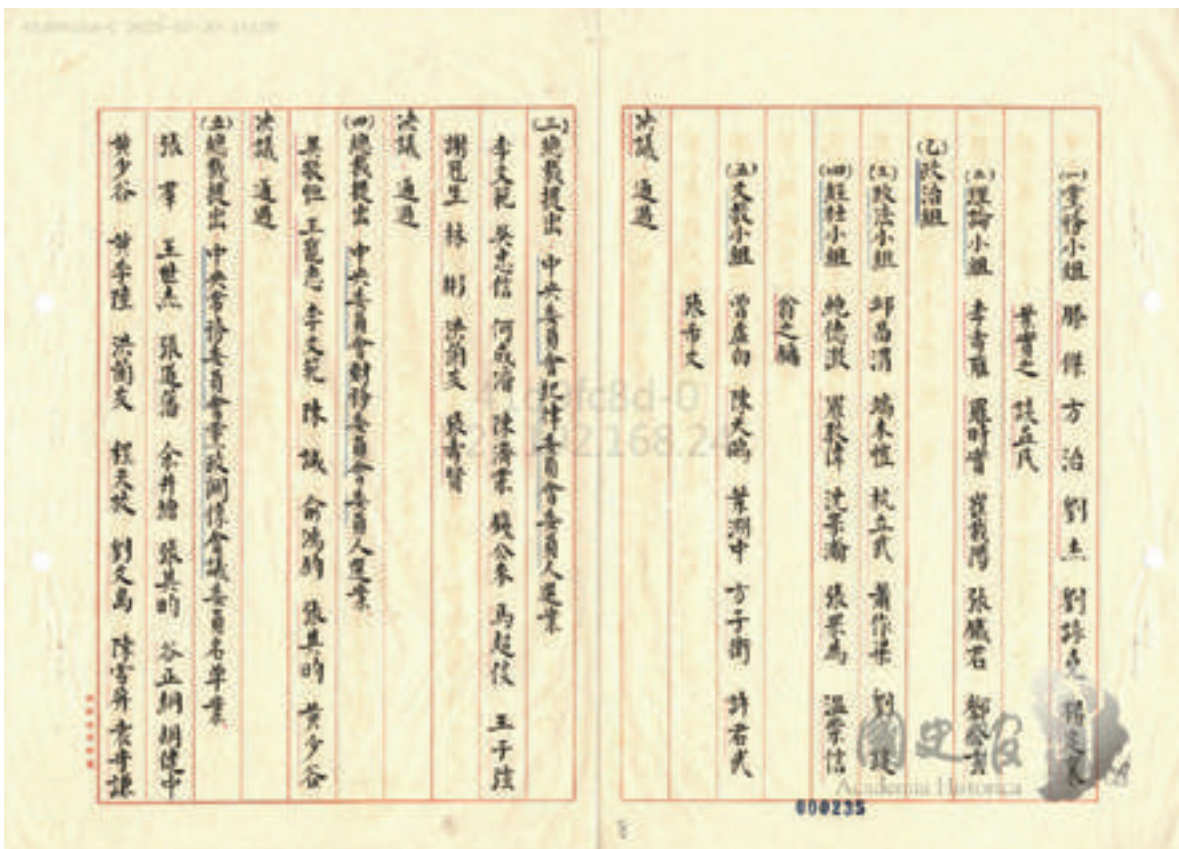 (一)黨務小組 滕傑 方治 劉杰 劉詠堯
葉實之 談益民
(二)理論小組 李壽雍 羅時實 崔載陽 張鐵君 鄒公玄
(乙)政治組
(三)政法小組 邱昌渭 端木愷 杭立武 蕭作梁 劉
(四)經社小組 鮑德澂 羅敦偉 沈宗瀚 張果為 溫崇信
翁之鏞
(五)文教小組 曾虛白 陳天鷗 葉溯中 方子衛 許君武
張希文
決議 通過
(三)總裁提出 中央委員會紀律委員會委員人選案
李文範 吳忠信 何成濬 陳濟棠 錢公來 馬超俊 王子弦
謝冠生 林彬 洪蘭友 張壽賢
決議 通過
(四)總裁提出 中央委員會財務委員會委員人選案
吳敬恆 王寵惠 李文範 陳誠 俞鴻鈞 張其昀 黃少谷
決議 通過
(五)總裁提出 中央常務委員會黨政關係會議委員名單案
張羣 王世杰 張道藩 余井塘 張其昀 谷正綱 胡健中
黃少谷 黃季陸 洪蘭友 程天放 劉文島 陳雪屏 袁守謙
000235
國史館
Academia Historica